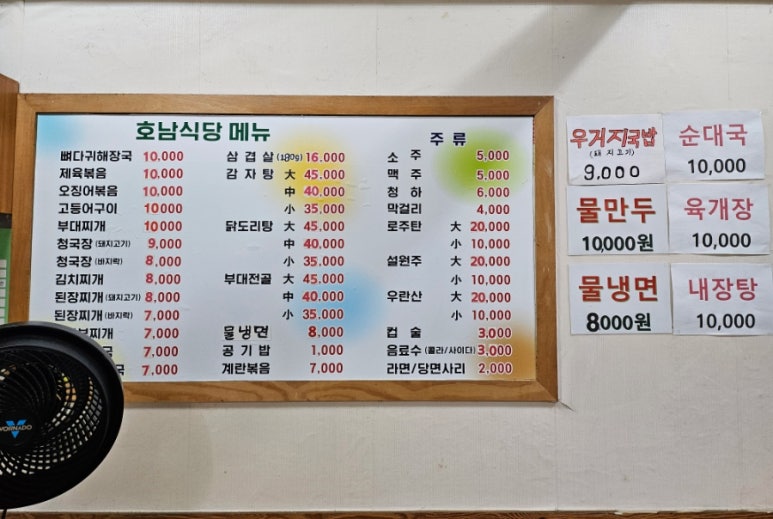 호남식당 메뉴
뼈다귀해장국 10,000
제육볶음 10,000
오징어볶음 10,000
고등어구이 10,000
부대찌개 10,000
청국장 (돼지고기) 9,000
청국장 (바지락) 8,000
김치찌개 8,000
된장찌개 (돼지고기) 8,000
된장찌개 (바지락) 7,000
부찌개 7,000
7,000
7,000
삼겹살 (180g) 16,000
감자탕 大 45,000
中 40,000
小 35,000
닭도리탕 大 45,000
中 40,000
小 35,000
부대전골 大 45,000
中 40,000
小 35,000
물냉면 8,000
공기밥 1,000
계란볶음 7,000
주류
소주 5,000
맥주 5,000
청하 6,000
막걸리 4,000
로주탄 大 20,000
小 10,000
설원주 大 20,000
小 10,000
우란산 大 20,000
小 10,000
컵술 3,000
음료수 (콜라/사이다) 3,000
라면/당면사리 2,000
우거지국밥
(돼지고기)
9,000
순대국
10,000
물만두
10,000원
육개장
10,000
물냉면
8000원
내장탕
10,000
VORNADO